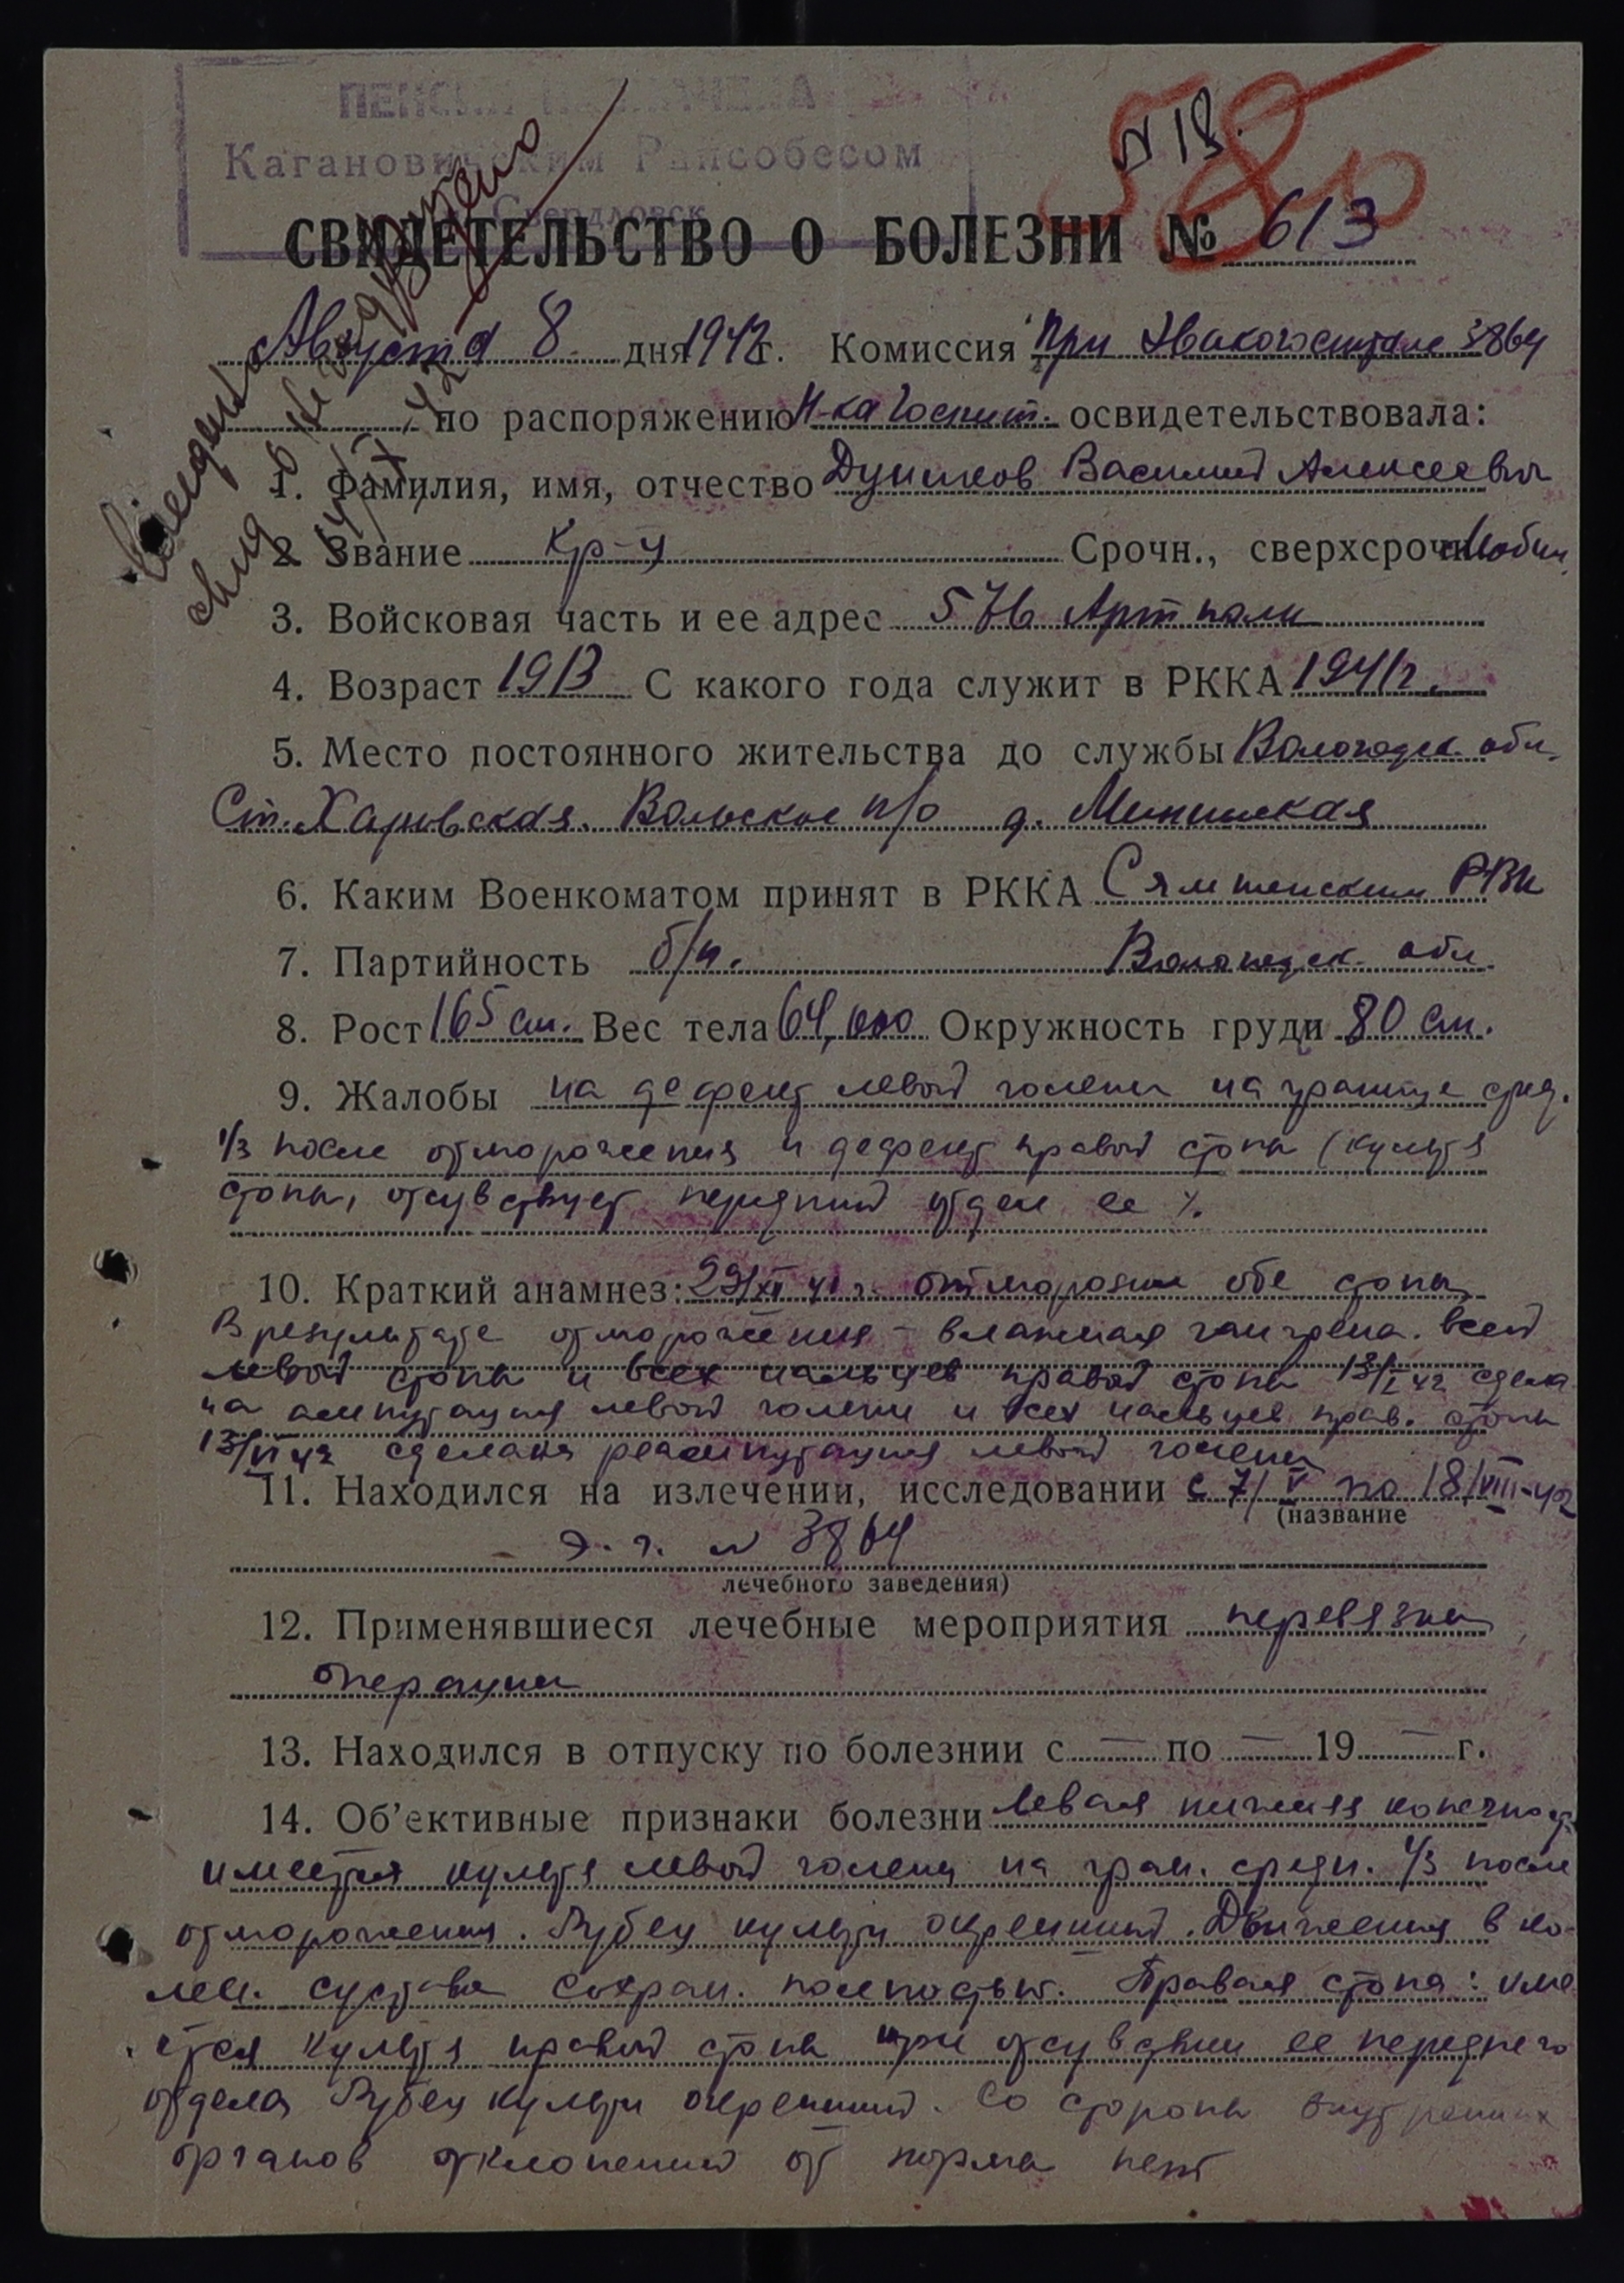 Кагановичским Райсобесом
Свердловск
N 18.
580
СВИДЕТЕЛЬСТВО О БОЛЕЗНИ № 613
Августа 8 дня 1942 г. Комиссия При Эвакогоспитале 3864
по распоряжению Н-ка Госпит. освидетельствовала:
1. Фамилия, имя, отчество Василий Алексеевич
2 Звание кр-ц Срочн., сверхсрочн
3. Войсковая часть и ее адрес 576 Артполк
4. Возраст 1913 С какого года служит в РККА 1941 г.
5. Место постоянного жительства до службы Вологодск. обл.
Ст. Харовская. п/о д. Мининская
6. Каким Военкоматом принят в РККА Сямженским РВК
7. Партийность б/п. Вологодск. обл.
8. Рост 165 см. Вес тела 64,000 Окружность груди 80 см.
9. Жалобы на дефект левой голени на границе сред.
1/3 после отморожения и дефект правой стопы (культя
стопы, отсувствует передний отдел ее).
10. Краткий анамнез: 29/XI 41 г. отморозил обе стопы
В результате отморожения – влажная гангрена всей
левой стопы и всех пальцев правой стопы 13/I 42 сдела
на ампутация левой голени и всех пальцев прав. стопы
13/VI 42 сделана реампутация левой голени
11. Находился на излечении, исследовании с 7/V по 18/VIII-42
(название
э. г. N 3864
лечебного заведения)
12. Применявшиеся лечебные мероприятия перевязки,
операции
13. Находился в отпуску по болезнии с — по — 19 — г.
14. Об'ективные признаки болезни Левая нижняя конечност
имеется культя левой голени на гран. средн. 1/3 после
отморожения. Рубец культи окрепший. Движения в ко-
лен. суставе сохран. полностью. Правая стопа: име
ется культя правой стопы при отсувствии ее переднего
отдела Рубец культи окрепший. Со стороны внутренних
органов отклонений от нормы нет